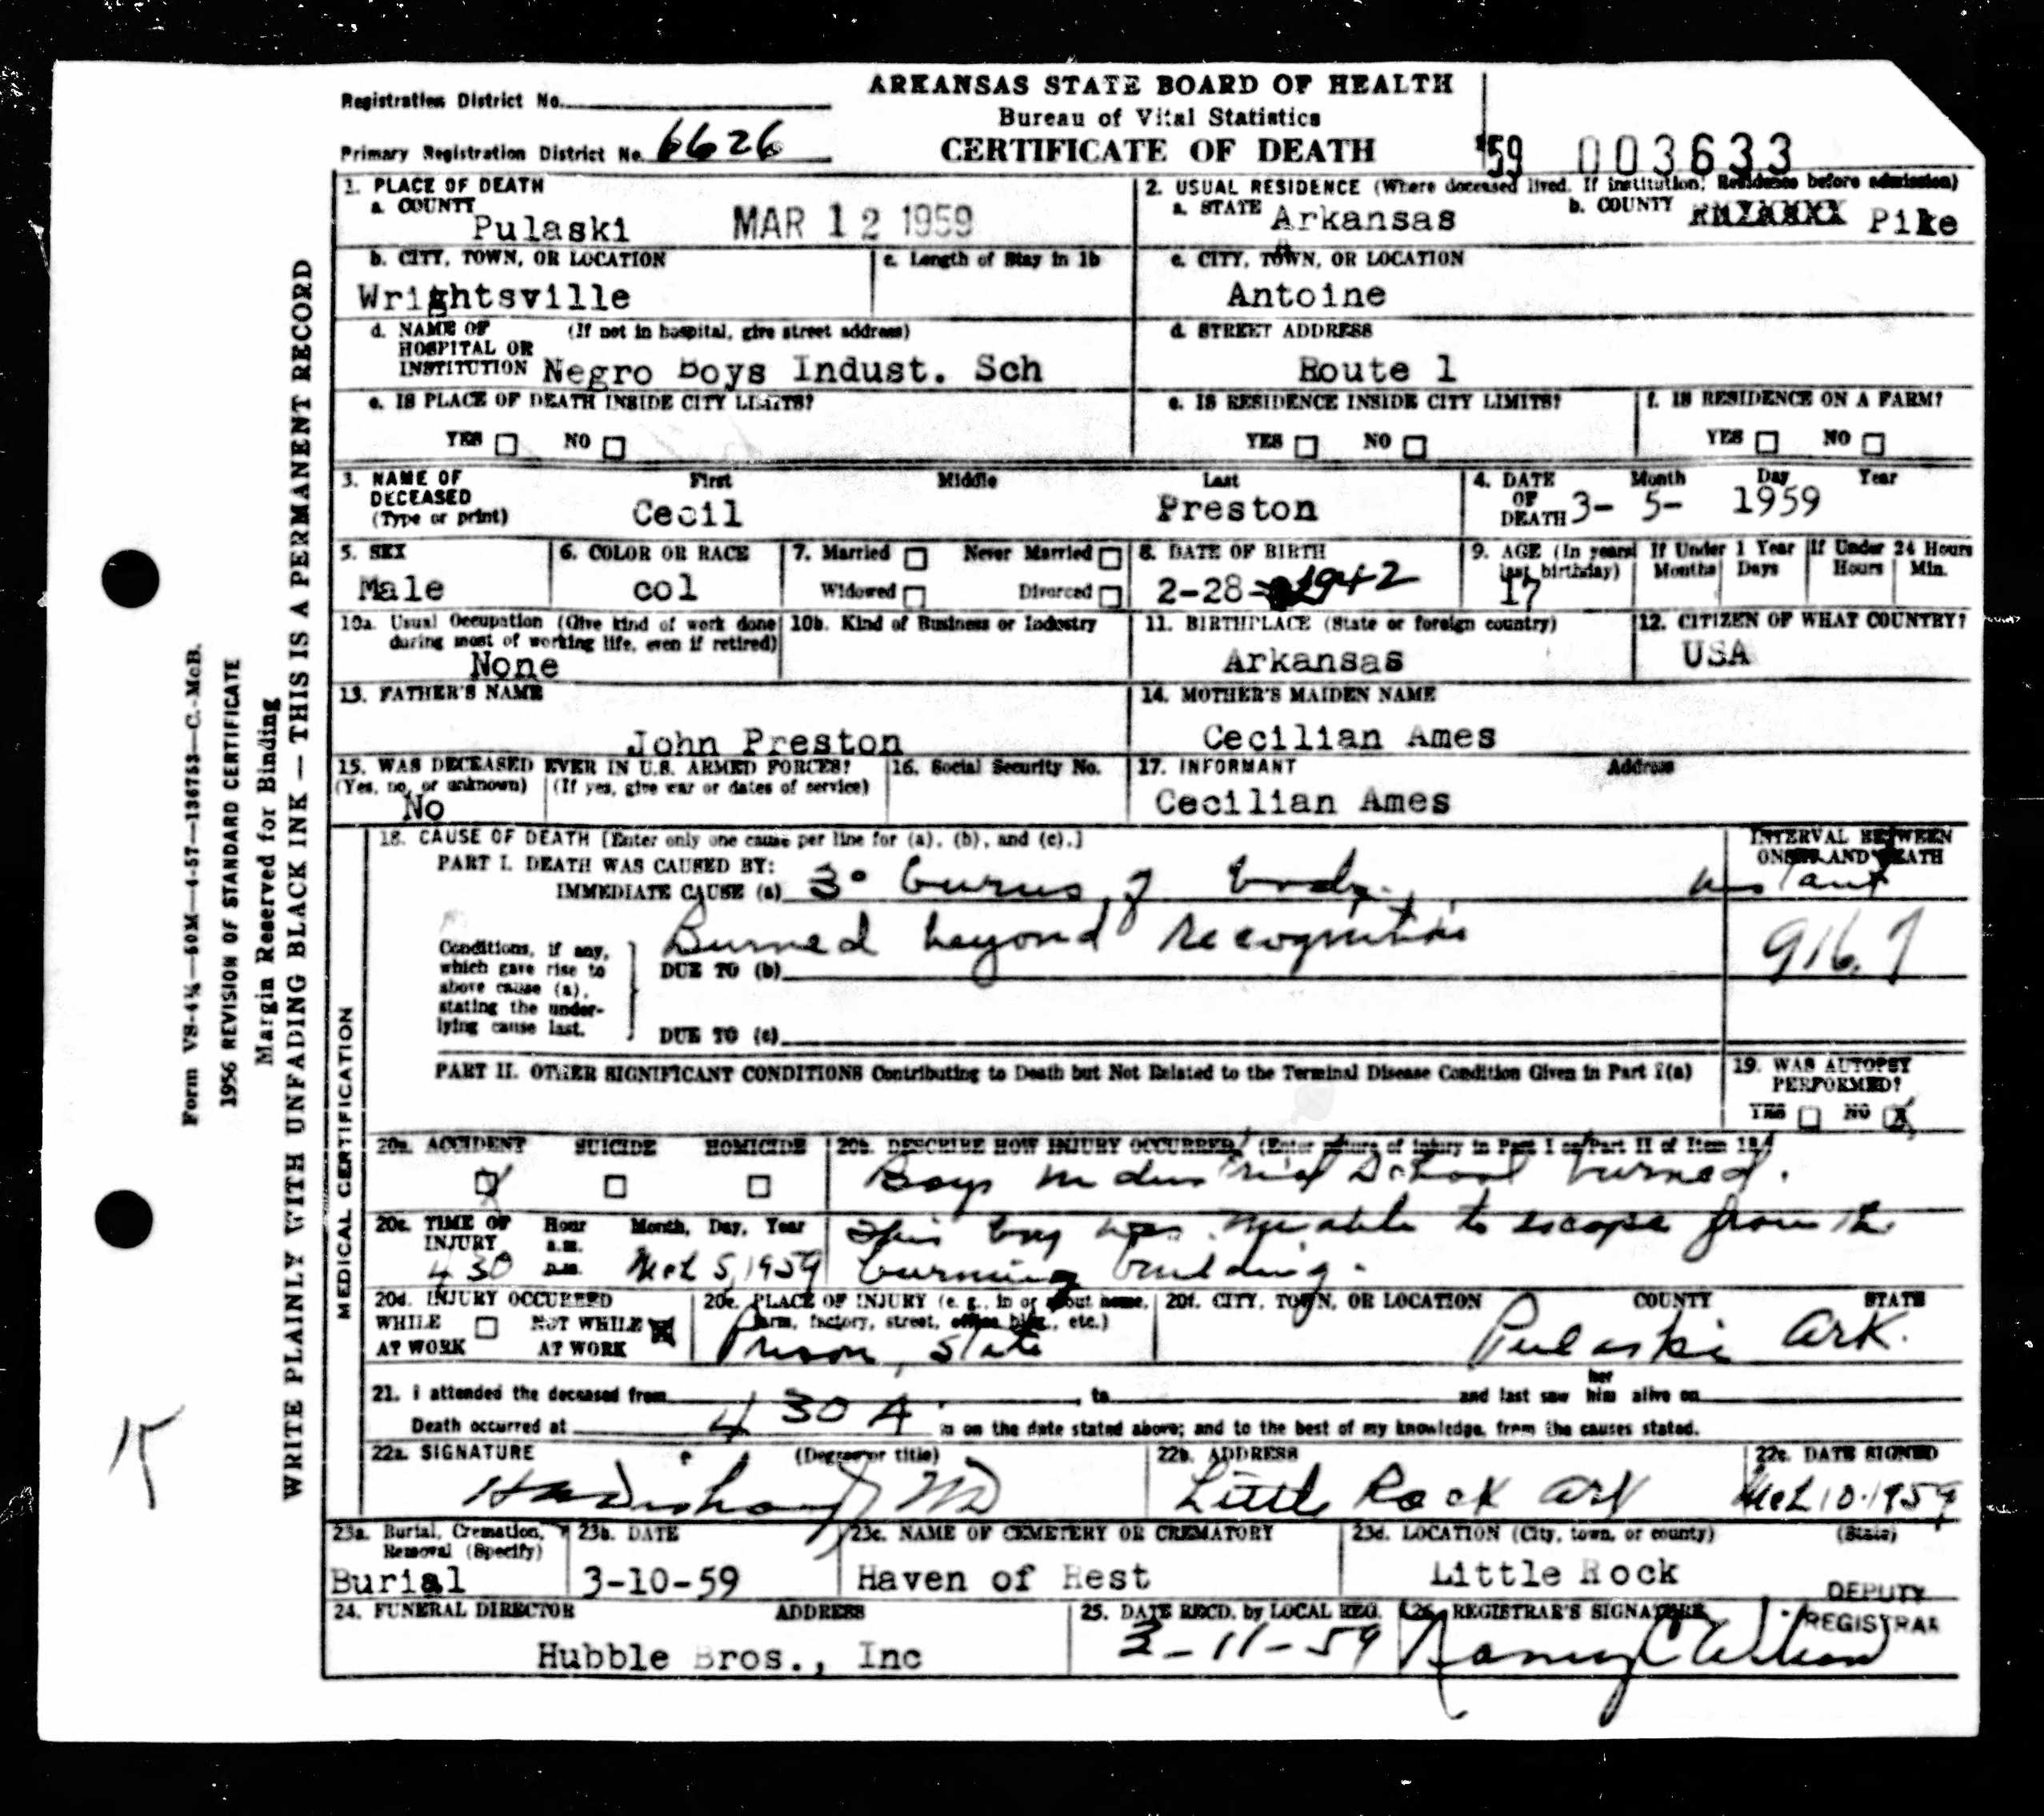 ARKANSAS STATE BOARD OF HEALTH
Bureau of Vital Statistics
CERTIFICATE OF DEATH
Registration District No.
Primary Registration District No. 6626
'59 003633
1. PLACE OF DEATH
a. COUNTY Pulaski MAR 12 1959
2. USUAL RESIDENCE (Where deceased lived. If institution: Residence before admission)
a. STATE Arkansas b. COUNTY Pike
b. CITY, TOWN, OR LOCATION Wrightsville
c. Length of Stay in 1b
c. CITY, TOWN, OR LOCATION Antoine
d. NAME OF HOSPITAL OR INSTITUTION (If not in hospital, give street address) Negro Boys Indust. Sch
d. STREET ADDRESS Route 1
e. IS PLACE OF DEATH INSIDE CITY LIMITS?
YES NO
e. IS RESIDENCE INSIDE CITY LIMITS?
YES NO
f. IS RESIDENCE ON A FARM?
YES NO
3. NAME OF DECEASED (Type or print) First Middle Last
Cecil Preston
4. DATE OF DEATH Month Day Year
3- 5- 1959
5. SEX Male
6. COLOR OR RACE col
7. Married Never Married
Widowed Divorced
8. DATE OF BIRTH 2-28-1942
9. AGE (In years last birthday) 17
If Under 1 Year Months Days
If Under 24 Hours Hours Min.
10a. Usual Occupation (Give kind of work done during most of working life, even if retired) None
10b. Kind of Business or Industry
11. BIRTHPLACE (State or foreign country) Arkansas
12. CITIZEN OF WHAT COUNTRY? USA
13. FATHER'S NAME John Preston
14. MOTHER'S MAIDEN NAME Cecilian Ames
15. WAS DECEASED EVER IN U.S. ARMED FORCES?
(Yes, no, or unknown) No (If yes, give war or dates of service)
16. Social Security No.
17. INFORMANT Address
Cecilian Ames
MEDICAL CERTIFICATION
18. CAUSE OF DEATH [Enter only one cause per line for (a), (b), and (c).]
INTERVAL BETWEEN ONSET AND DEATH
PART I. DEATH WAS CAUSED BY:
IMMEDIATE CAUSE (a) 3° burns of body. instant
Burned beyond recognition
916.9
Conditions, if any, which gave rise to above cause (a), stating the underlying cause last.
DUE TO (b)
DUE TO (c)
PART II. OTHER SIGNIFICANT CONDITIONS Contributing to Death but Not Related to the Terminal Disease Condition Given in Part I(a)
19. WAS AUTOPSY PERFORMED?
YES NO X
20a. ACCIDENT X SUICIDE HOMICIDE
20b. DESCRIBE HOW INJURY OCCURRED. (Enter nature of injury in Part I or Part II of Item 18.)
Boys Industrial School burned.
This boy was unable to escape from the
burning building.
20c. TIME OF INJURY Hour a.m. p.m. Month, Day, Year
4 30 Mch 5, 1959
20d. INJURY OCCURRED
WHILE AT WORK NOT WHILE AT WORK X
20e. PLACE OF INJURY (e. g., in or about home, farm, factory, street, office bldg., etc.)
Prison, State
20f. CITY, TOWN, OR LOCATION COUNTY STATE
Pulaski Ark.
21. I attended the deceased from to and last saw her him alive on
Death occurred at 4 30 A m on the date stated above; and to the best of my knowledge, from the causes stated.
22a. SIGNATURE (Degree or title)
MD
22b. ADDRESS Little Rock Ark
22c. DATE SIGNED Mch 10. 1959
23a. Burial, Cremation, Removal (Specify) Burial
23b. DATE 3-10-59
23c. NAME OF CEMETERY OR CREMATORY Haven of Rest
23d. LOCATION (City, town, or county) (State)
Little Rock
24. FUNERAL DIRECTOR ADDRESS
Hubble Bros., Inc
25. DATE RECD. by LOCAL REG. 3-11-59
26. REGISTRAR'S SIGNATURE
DEPUTY REGISTRAR
Form VS-4¼—50M—4-57—136753—C.-McB.
1956 REVISION OF STANDARD CERTIFICATE
Margin Reserved for Binding
WRITE PLAINLY WITH UNFADING BLACK INK — THIS IS A PERMANENT RECORD